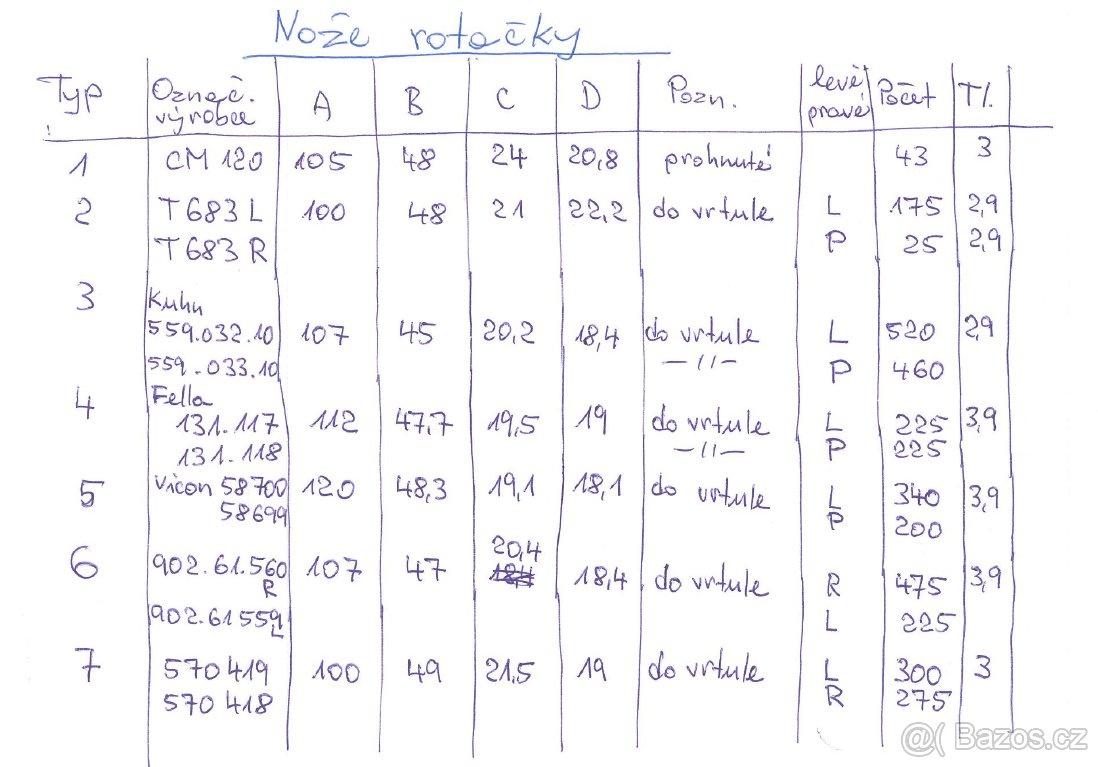 Nože rotačky
Typ Označ. výrobce A B C D Pozn. levé pravé Počet Tl.
1 CM 120 105 48 24 20,8 prohnuté 43 3
2 T683 L 100 48 21 22,2 do vrtule L 175 2,9
T683 R P 25 2,9
3 Kuhn
559.032.10 107 45 20,2 18,4 do vrtule L 520 2,9
559.033.10 -//- P 460
4 Fella
131.117 112 47,7 19,5 19 do vrtule L 225 3,9
131.118 -//- P 225
5 Vicon 58700 120 48,3 19,1 18,1 do vrtule L 340 3,9
58699 P 200
6 902.61.560 R 107 47 20,4 18,4 do vrtule R 475 3,9
902.61559 L L 225
7 570 419 100 49 21.5 19 do vrtule L 300 3
570 418 R 275
@( Bazos.cz